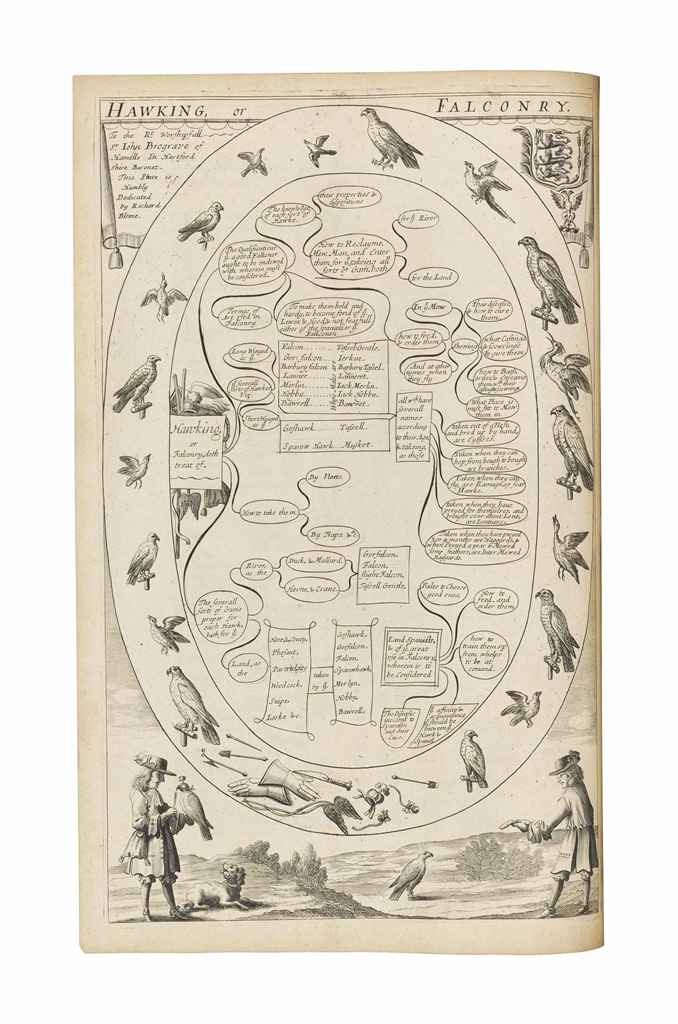 HAWKING, or FALCONRY.
To the Rt. Worshipfull
Sr. Iohn Brograve of
Hamells In Hartford
Shire Baronet.
This Plate is
Humbly
Dedicated
by Richard
Blome.
The Knowledge
of each sort of
Hawke.
their properties &
dispositions
for ye River
for the Land
How to Reclayme,
Mew, Man, and Enter
them for ye takeing all
sorts of Game, both
The Qualifications
a good Falconer
ought to be endowed
with wherein must
be considered.
Termes of
Art used in
Falconry.
To make them bold and
hardy, to become fond of ye
Lewre & Sped, & not fearfull
either of the Spaniells or
Falconer.
In ye Mew
how to feed,
& order them
And at other
tymes when
they fly.
shewing
Their diseases
& how to cure
them.
What Castings
& Scowrings
to give them
how to Bath,
them
What Place is
most fit to Mew
them in
Long Winged
as ye
ye Severall
sorts of Hawkes
Viz.
Short Winged
as ye
Falcon Tassell Gentle.
Gerfalcon. Ierkin.
Barbury falcon Barbary Tassel.
Lanner Lanneret.
Merlin Iack Merlin.
Hobby Iack Hobby.
Bawrell. Bawret.
Whose Males are
Goshawk. Tassell.
Sparow Hawk Musket.
all wch. have
severall
names
according
to their Age,
& takeing,
as those
Taken out of ye Nest,
and bred up by hand,
are Eyesses.
Taken when they can
hop from bough to bough
are branches.
Taken when they can
fly, are Ramage or soar
Hawks.
taken when they have
preyed for themselves, and
brought over about Lent,
are Lentiners.
Taken when they have preyed
for 8 months are Haggards, &
when
Haggards.
Hawking,
or
Falconry, doth
treat of.
How to take them
By Netts.
By Napps &c.
The severall
sorts of Game
proper for
each Hawk,
both for ye
River,
as the
Duck, & Mallard.
Herne, & Crane.
Gerfalcon.
Falcon,
slight Falcon,
Tassell Gentle.
Land, as
the
Phesant,
Partridges
Woodcock,
Snipe,
Larke &c.
taken
by ye
Goshawk.
Gerfalcon.
Falcon.
Sparowhawk.
Merlyn.
Hobby.
Bawrell.
Rules to Choose
good ones.
How to
feed, and
order them.
Land Spaniells,
of ye great
use in Falconry,
wherein is to
be Considered
how to
train them up
from whelps
to be at
comand.
The Diseases
incident to
Spaniells
and their
Cure.
ye affinity &
should be
between
Hawk &
Spaniell